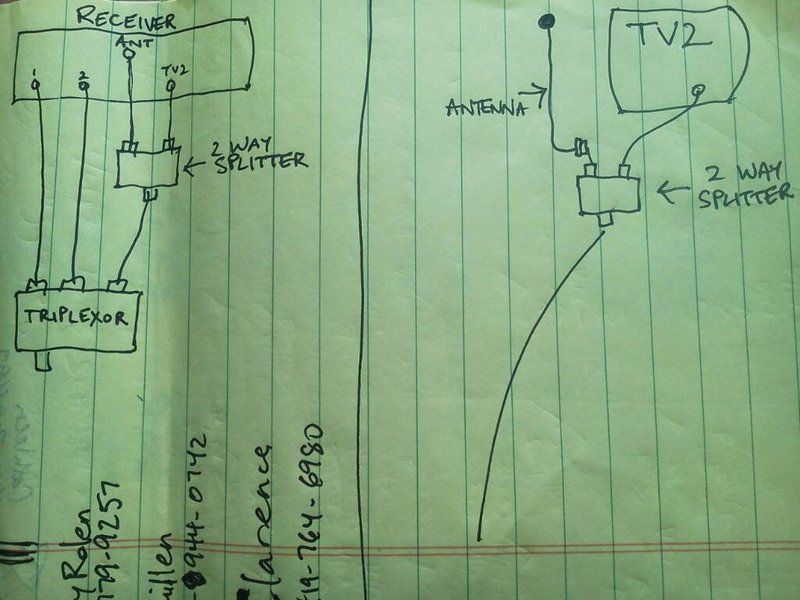 RECEIVER
ANT
1
2
TV2
2 WAY
SPLITTER
TRIPLEXOR
TV2
ANTENNA
2 WAY
SPLITTER
Rolen
79-9257
944-0742
larence
764-6980